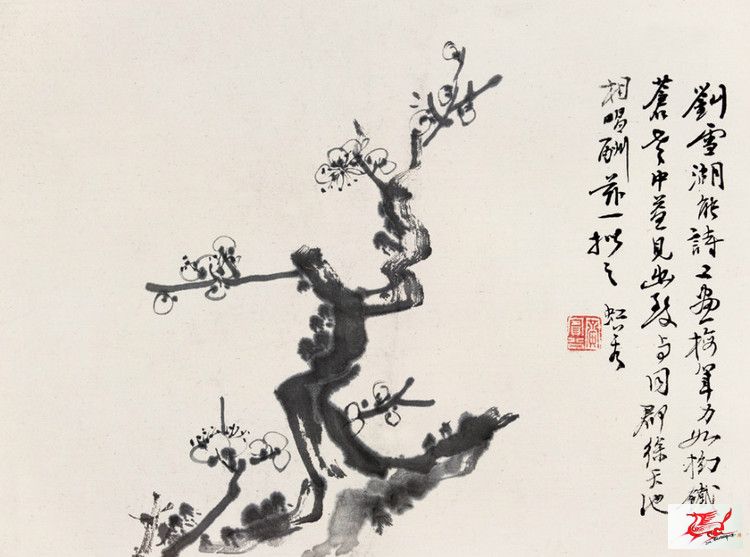 劉雪湖能詩工畫梅筆力如鐵
蒼老中益見幽致与同郡徐天池
相唱酬茲一拟之 虹若